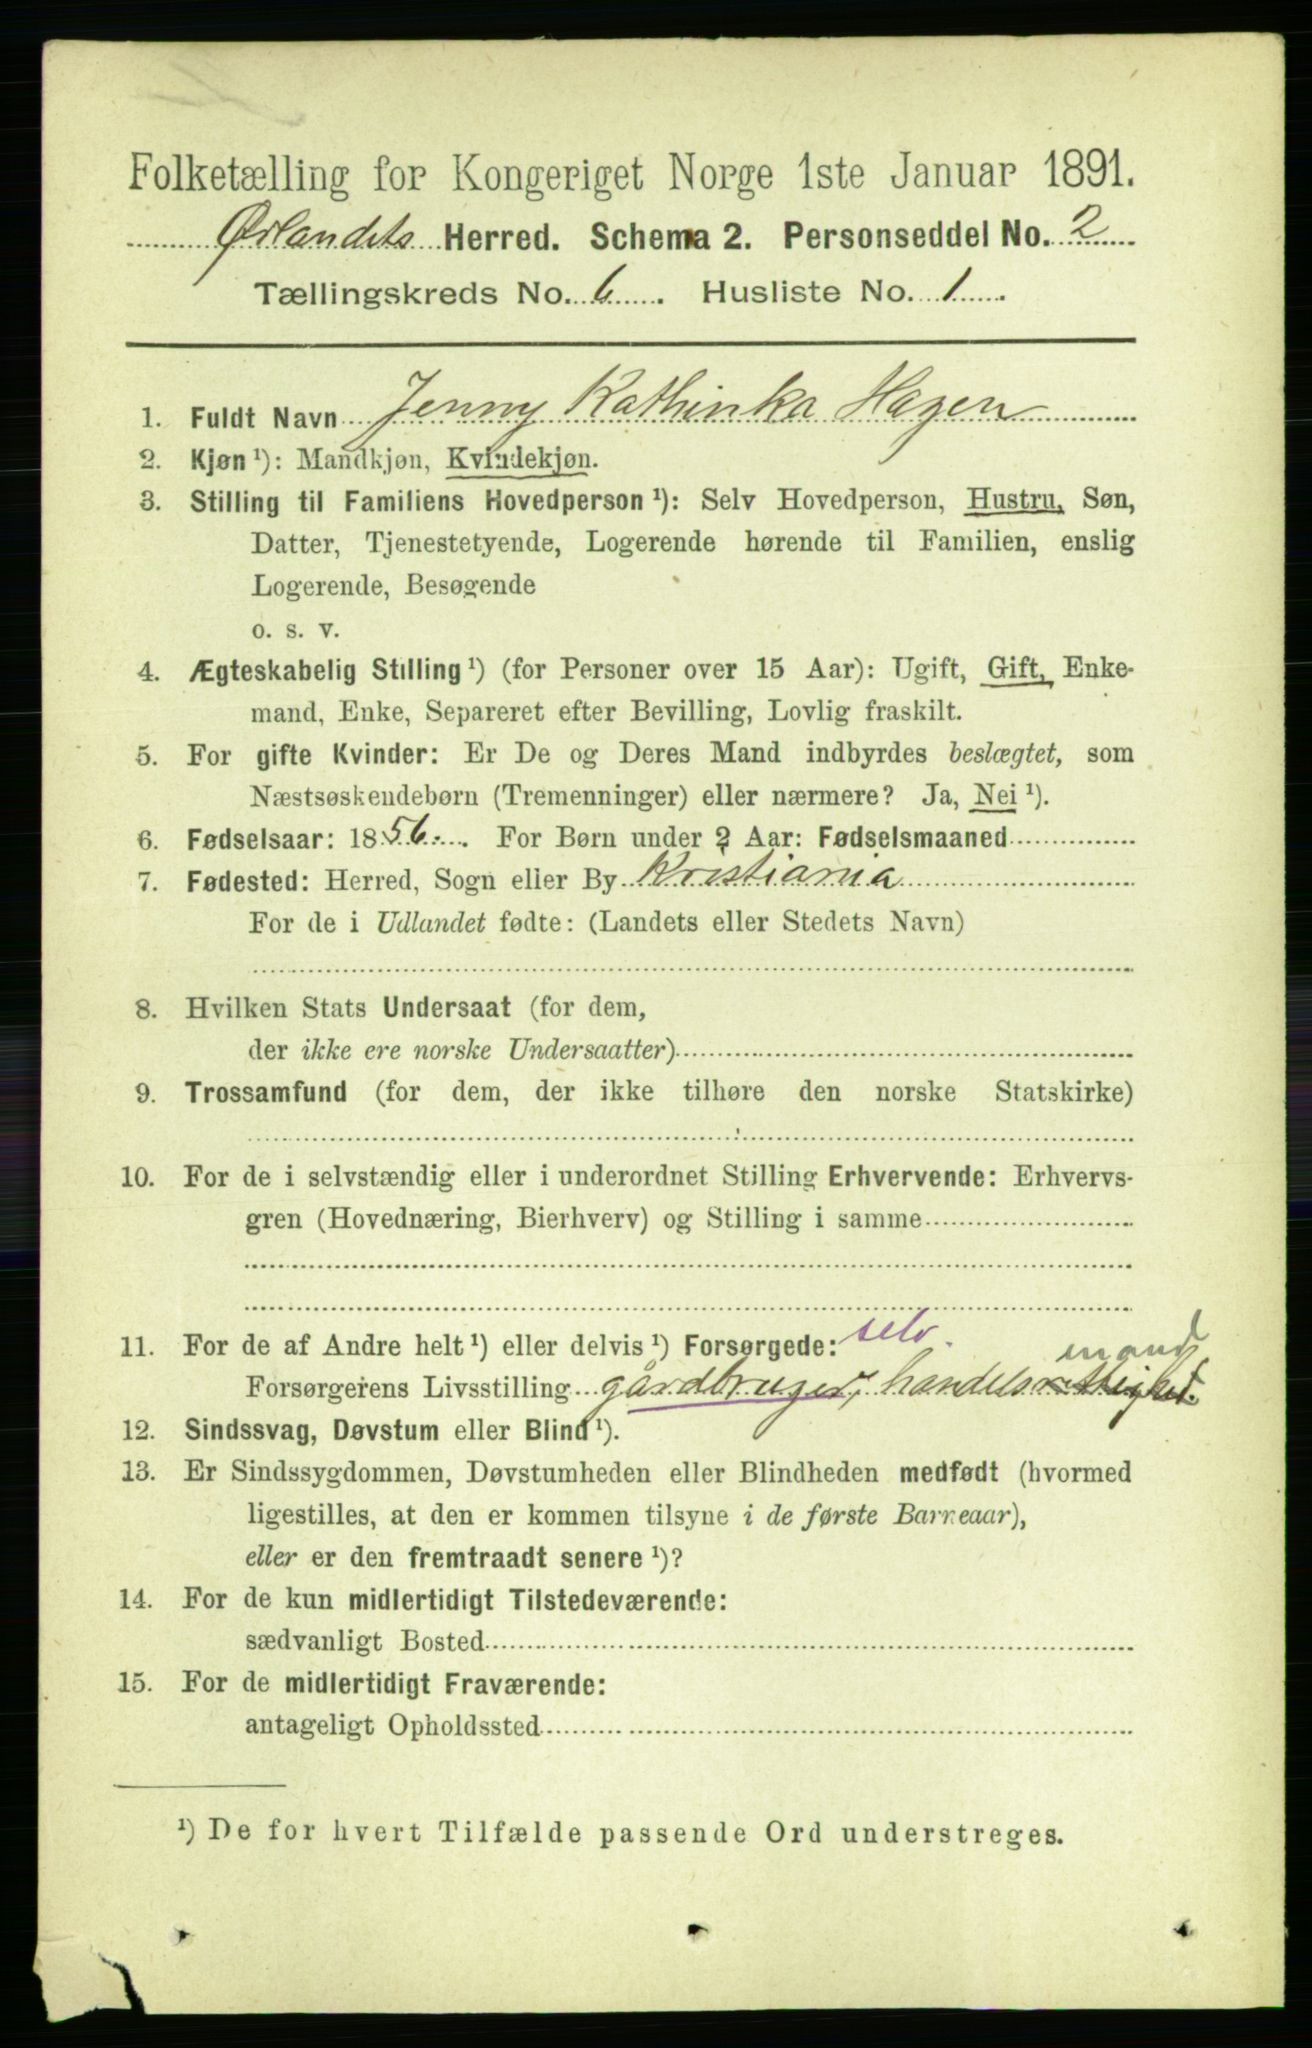 Folketælling for Kongeriget Norge 1ste Januar 1891.
Ørlandets Herred. Schema 2. Personseddel No. 2
Tællingskreds No. 6. Husliste No. 1.
1. Fuldt Navn Jenny Kathinka Hagen
2. Kjøn ¹): Mandkjøn, Kvindekjøn.
3. Stilling til Familiens Hovedperson ¹): Selv Hovedperson, Hustru, Søn,
Datter, Tjenestetyende, Logerende hørende til Familien, enslig
Logerende, Besøgende
o. s. v.
4. Ægteskabelig Stilling ¹) (for Personer over 15 Aar): Ugift, Gift, Enke-
mand, Enke, Separeret efter Bevilling, Lovlig fraskilt.
5. For gifte Kvinder: Er De og Deres Mand indbyrdes beslægtet, som
Næstsøskendebørn (Tremenninger) eller nærmere? Ja, Nei ¹).
6. Fødselsaar: 1856. For Børn under 2 Aar: Fødselsmaaned
7. Fødested: Herred, Sogn eller By Kristiania
For de i Udlandet fødte: (Landets eller Stedets Navn)
8. Hvilken Stats Undersaat (for dem,
der ikke ere norske Undersaatter)
9. Trossamfund (for dem, der ikke tilhøre den norske Statskirke)
10. For de i selvstændig eller i underordnet Stilling Erhvervende: Erhvervs-
gren (Hovednæring, Bierhverv) og Stilling i samme
11. For de af Andre helt ¹) eller delvis ¹) Forsørgede: selv. mand
Forsørgerens Livsstilling gårdbruger, handelsrettighet.
12. Sindssvag, Døvstum eller Blind ¹).
13. Er Sindssygdommen, Døvstumheden eller Blindheden medfødt (hvormed
ligestilles, at den er kommen tilsyne i de første Barneaar),
eller er den fremtraadt senere ¹)?
14. For de kun midlertidigt Tilstedeværende:
sædvanligt Bosted
15. For de midlertidigt Fraværende:
antageligt Opholdssted
¹) De for hvert Tilfælde passende Ord understreges.